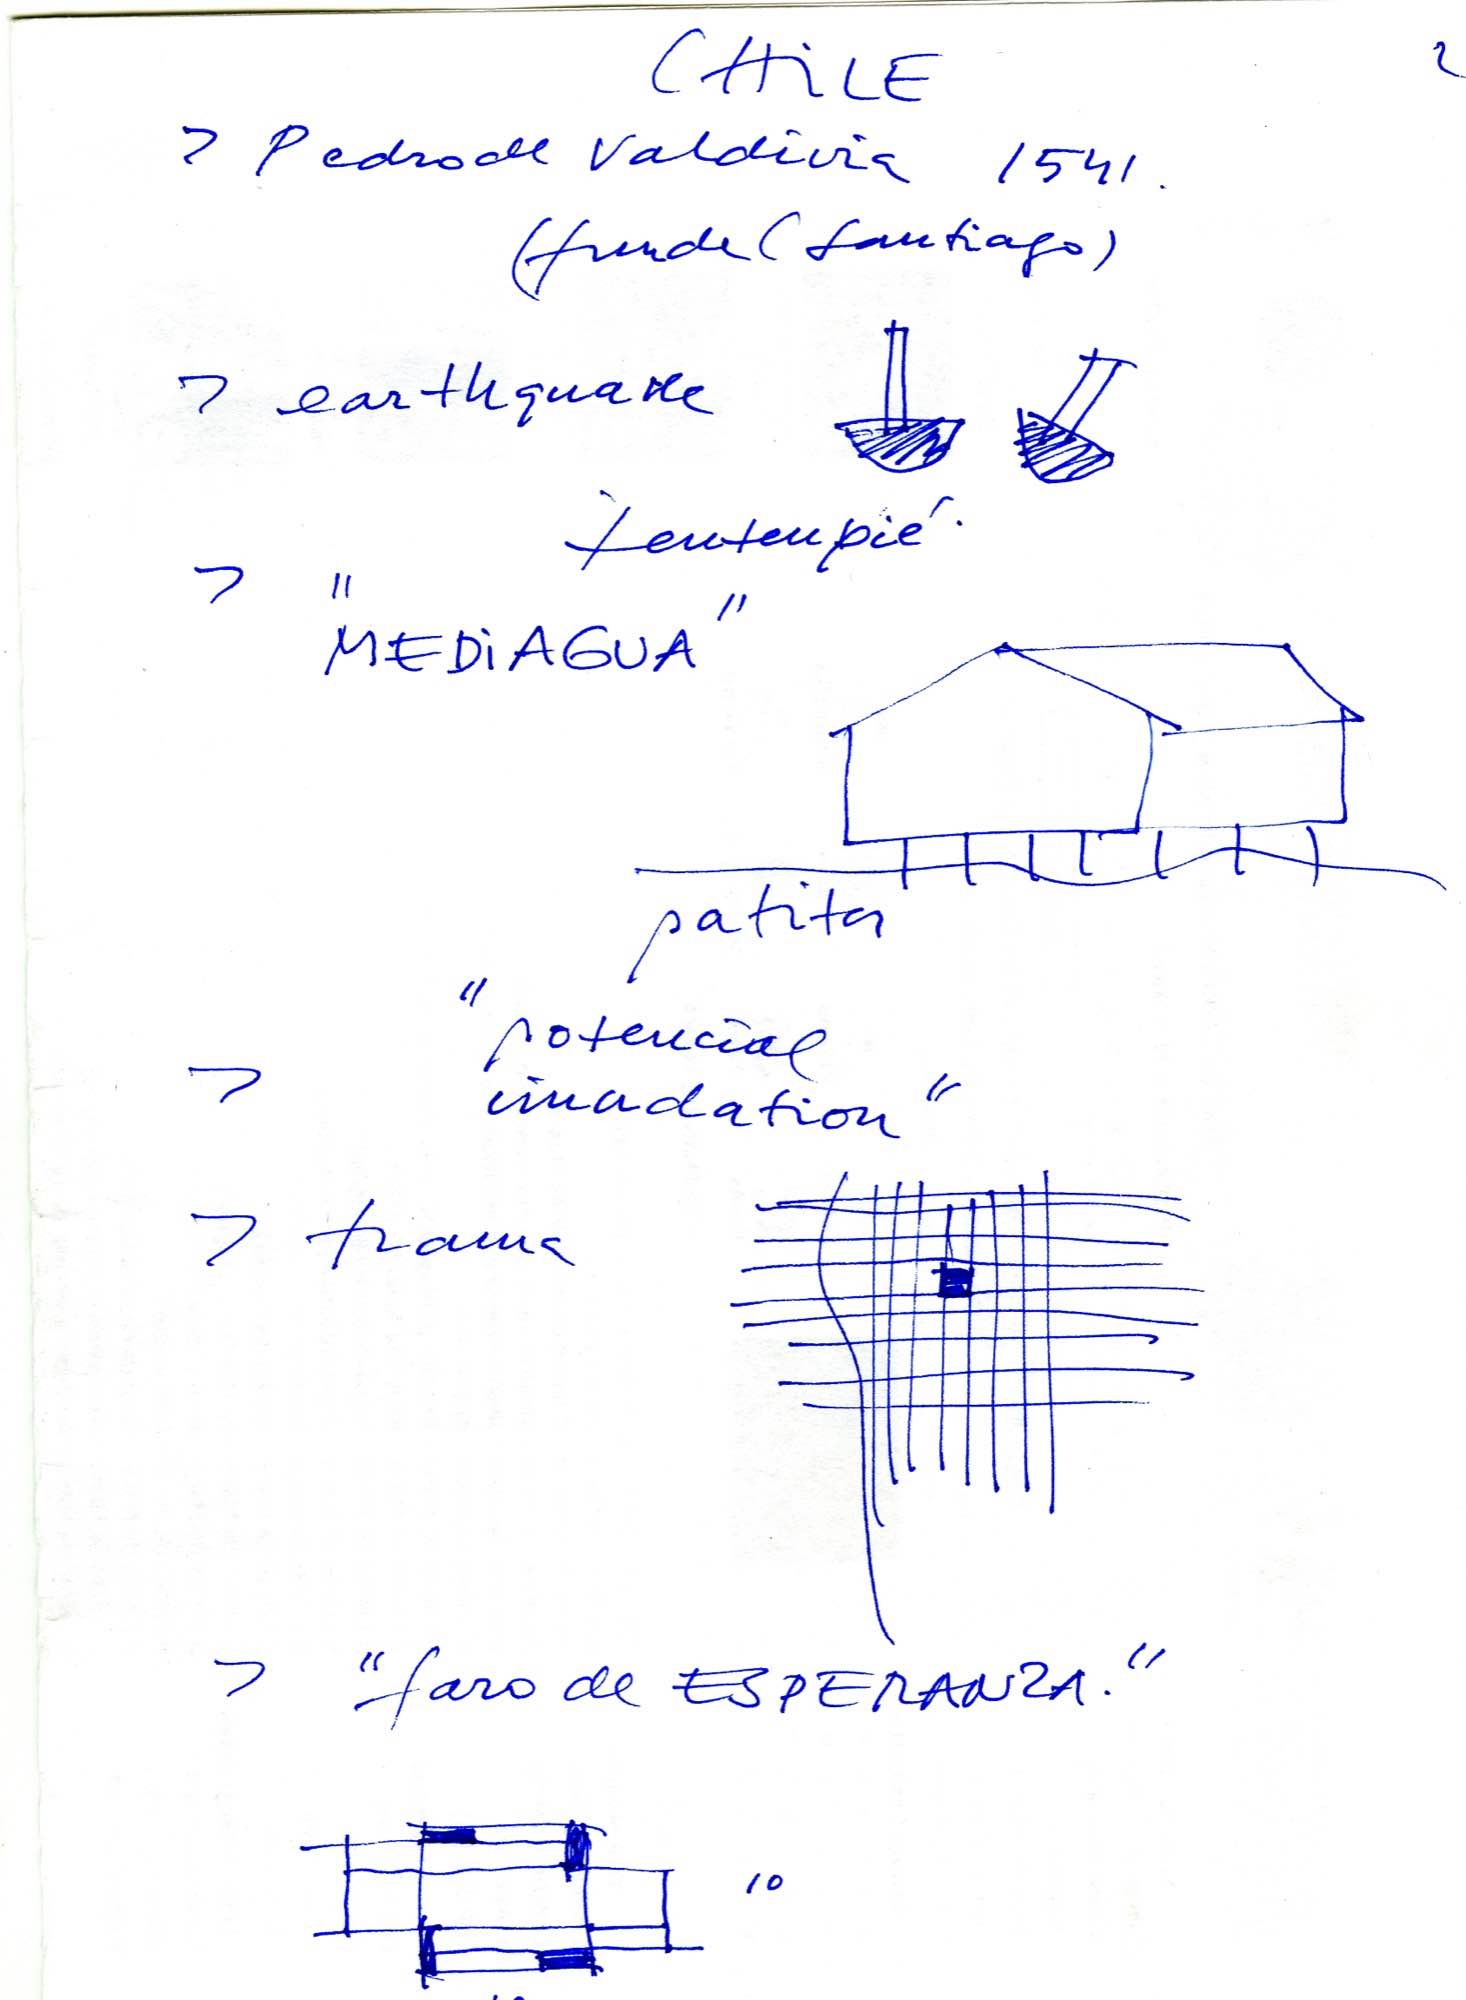 CHiLE
2
> Pedro de Valdivia 1541.
(funde (Santiago)
> earthquake
tentenpié.
> "MEDiAGUA"
patita
"potencial
> inudation"
> trama
> "faro de ESPERANZA."
10
10